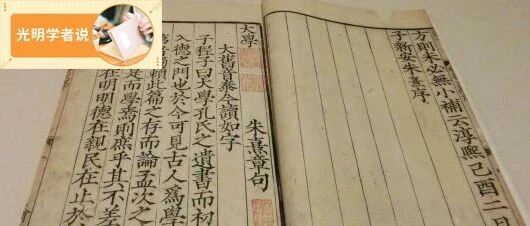 光明学者说
方則未必無小補云淳熙己酉二
子新安朱熹序
大學 朱熹章句
大舊音泰今讀如字
子程子曰大學孔氏之遺書而初
入德之門也於今可見古人爲學
獨賴此篇之存而論孟次之
是而學焉則庶乎其不差
在明明德在親民在止於